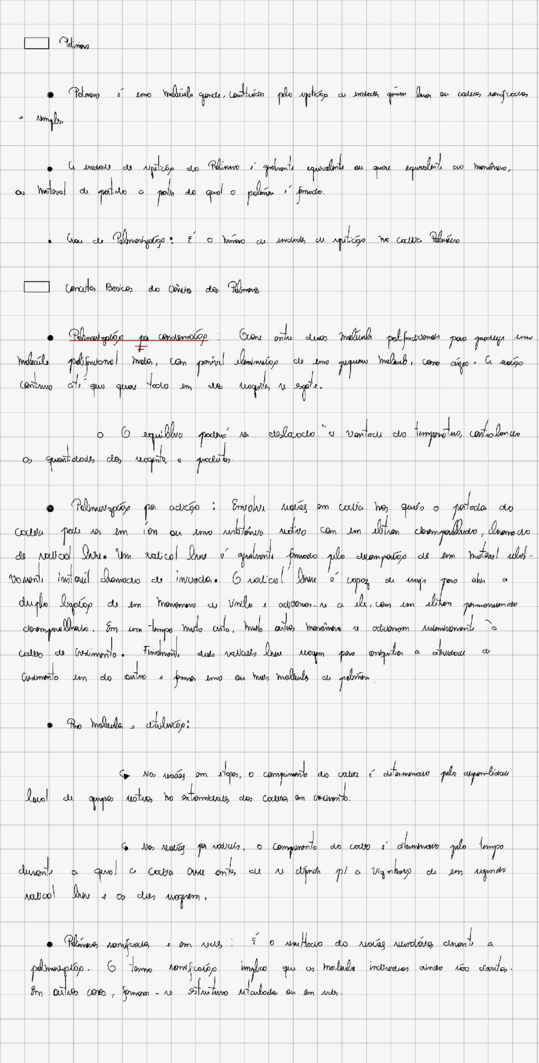 Polímeros
• Polímero é uma molécula grande, constituída pela repetição de unidades químicas leves ou cadeias ramificadas
e simples.
• A unidade de repetição do Polímero é geralmente equivalente ou quase equivalente ao monômero,
ou material de partida a partir do qual o polímero é formado.
• Grau de Polimerização: É o número de unidades de repetição na cadeia Polimérica
Conceitos Básicos da Ciência dos Polímeros
• Polimerização por condensação: Ocorre entre duas moléculas polifuncionais para produzir uma
molécula polifuncional maior, com possível eliminação de uma pequena molécula, como água. A reação
continua até que quase todo um dos reagentes se esgote.
o O equilíbrio poderá ser deslocado à vontade da temperatura, controlando
as quantidades dos reagentes e produtos.
• Polimerização por adição: Envolve reações em cadeia nas quais o portador da
cadeia pode ser um íon ou uma substância reativa com um elétron desemparelhado chamado
de radical livre. Um radical livre é geralmente formado pela decomposição de um material relati-
vamente instável chamado de iniciador. O radical livre é capaz de reagir para abrir a
dupla ligação de um monômero de vinila e adicionar-se a ele, com um elétron permanecendo
desemparelhado. Em um tempo muito curto, muitos outros monômeros se adicionam sucessivamente à
cadeia de crescimento. Finalmente dois radicais livres reagem para aniquilar a atividade de
crescimento um do outro e formar uma ou mais moléculas de polímero.
• Peso molecular e distribuição:
↳ Nas reações em etapas, o comprimento da cadeia é determinado pela disponibilidade
local de grupos reativos nas extremidades das cadeias em crescimento.
↳ Nas reações por radicais, o comprimento da cadeia é determinado pelo tempo
durante a qual a cadeia cresce antes de se difundir p/ a vizinhança de um segundo
radical livre e os dois reagirem.
• Polímeros ramificados e em redes: É o resultado de reações secundárias durante a
polimerização. O termo ramificação implica que as moléculas individuais ainda são discretas.
Em outros casos, formam-se estruturas reticuladas ou em redes.